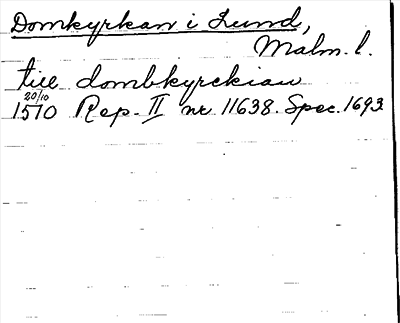 Domkyrkan i Lund,
Malm. l.
till dombkyrckian
20/10
1570 Rep. II nr 11638. Spec. 1693